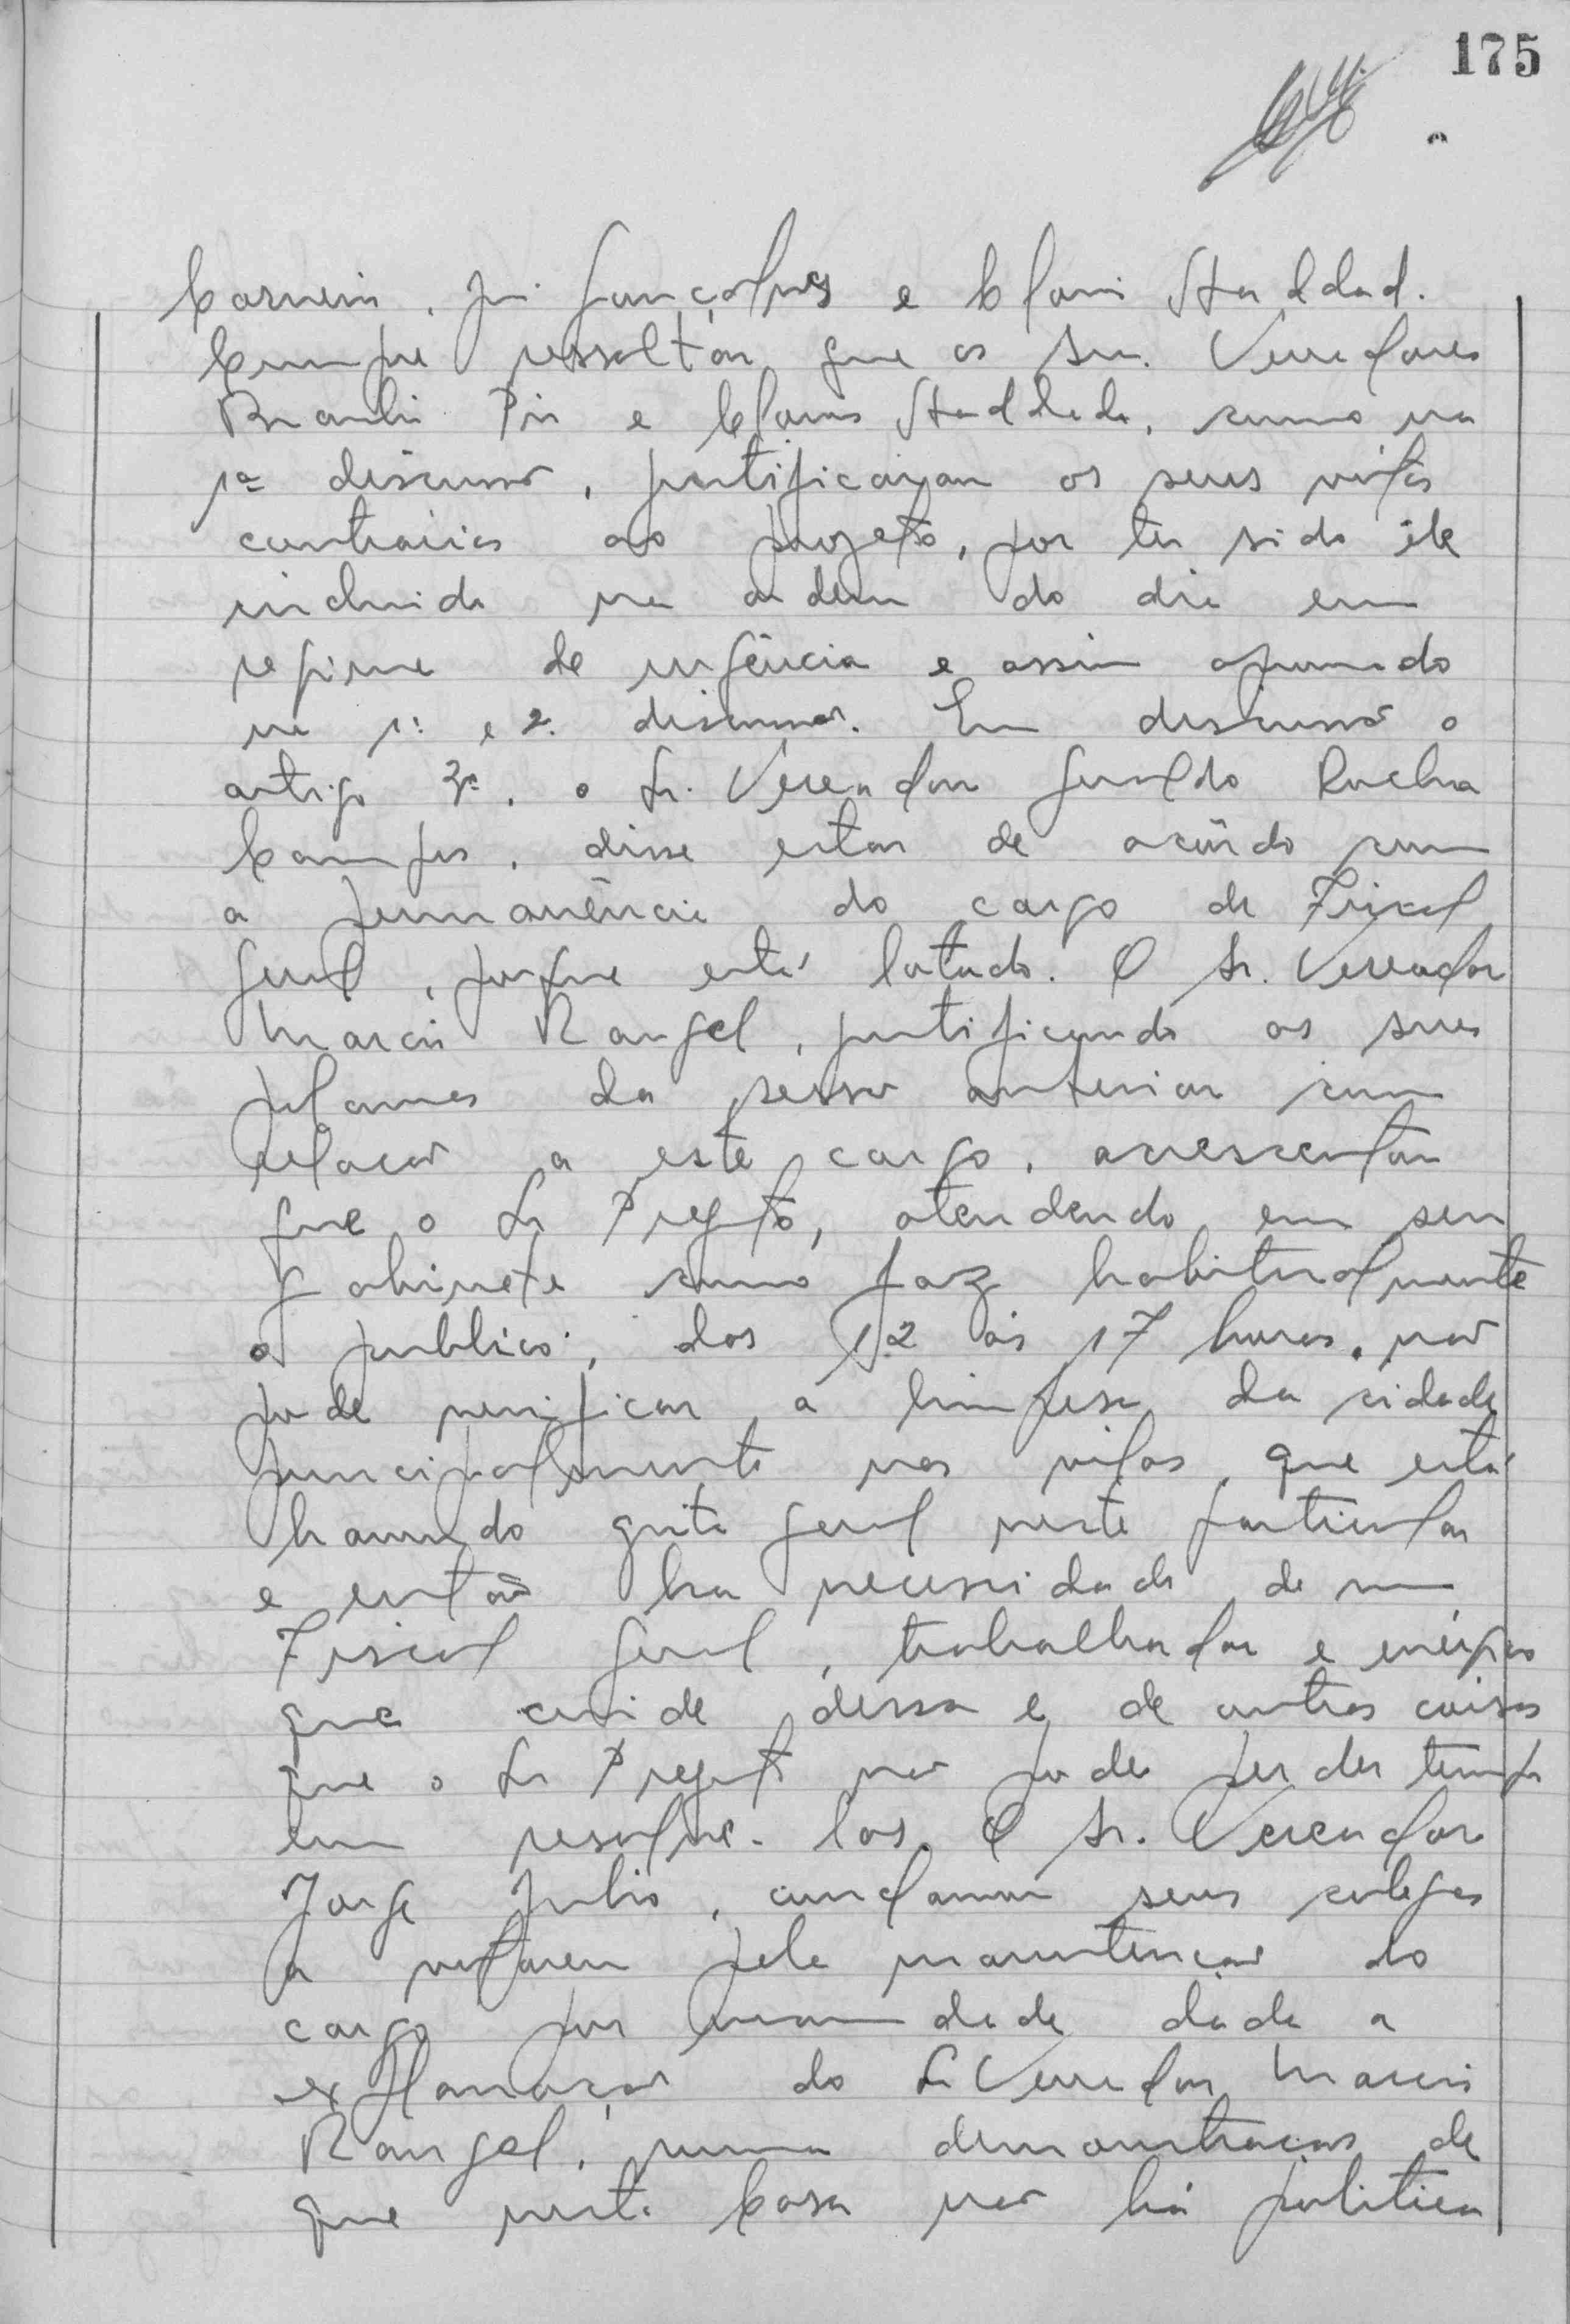 175
Carneiro, José Gonçalves e Clovis Haddad.
Cumpre ressaltar que os Srs. Vereadores
Braulio Pio e Clovis Haddad, como na
1ª discussão, justificaram os seus vótos
contrários ao projeto, por ter sido êle
incluido na ordem do dia em
regime de urgência e assim aprovado
na 1ª e 2ª discussão. Em discussão o
artigo 3º, o Sr. Vereador Geraldo Rocha
Campos, disse estar de acôrdo com
a permanência do cargo de Fiscal
Geral, porque está lotado. O Sr. Vereador
Marcio Rangel, justificando as suas
da sessão anterior com
relação a este cargo, acrescentou
que o Sr Prefeito, atendendo em seu
gabinete como faz habitualmente
o publico, das 12 às 17 horas, não
pode verificar a limpesa da cidade
principalmente nas vilas, que está
havendo grita geral neste particular
e então ha necessidade de um
Fiscal Geral, trabalhador e enérgico
que cuide dessa e de outras coisas
que o Sr Prefeito não pode perder tempo
em resolve-las. O Sr. Vereador
Jorge Julio, conclamou seus colegas
a votarem pela manutenção do
cargo por unanimidade dada a
explanação do Sr Vereador Marcio
Rangel, numa demonstração de
que nesta Casa não há politica